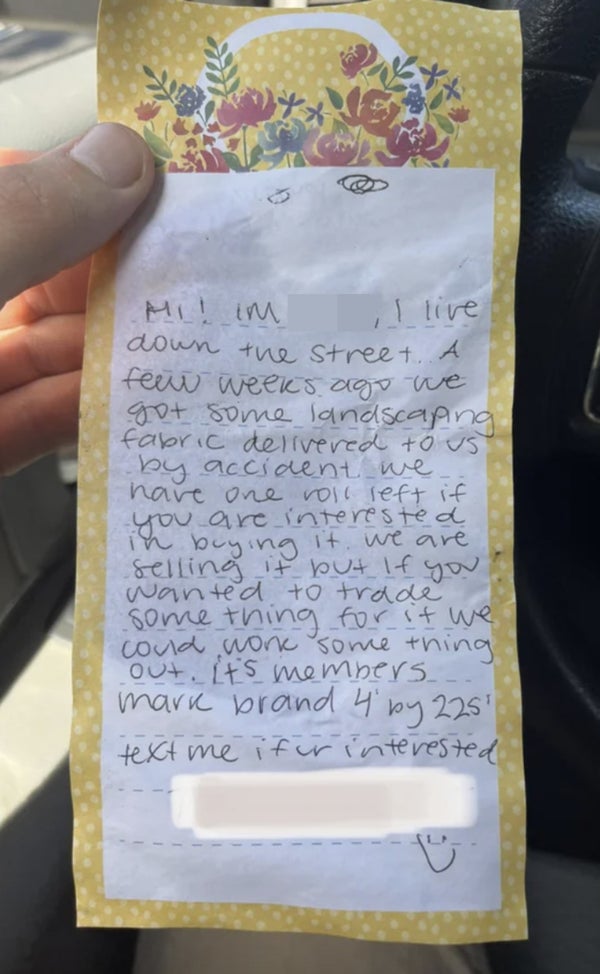 Hi! im , I live
down the street. A
few weeks ago we
got some landscaping
fabric delivered to us
by accident we
have one roll left if
you are interested
in buying it. we are
selling it but if you
wanted to trade
some thing for it we
could work some thing
out. it's members
mark brand 4' by 225'
text me if ur interested